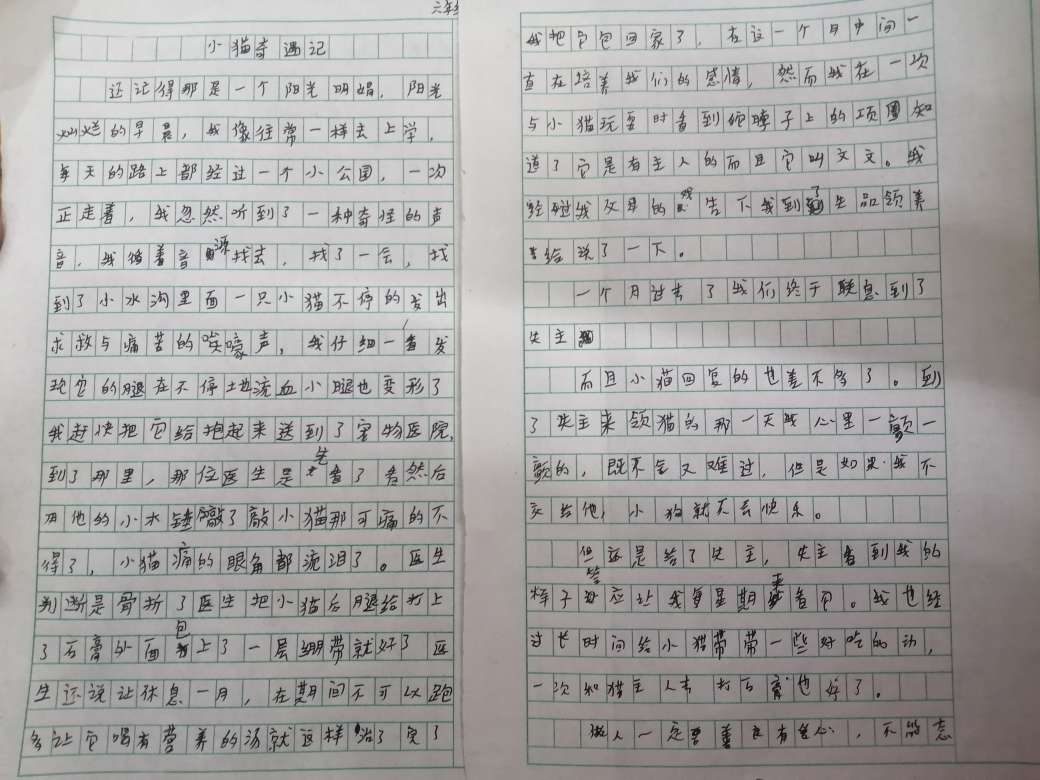 六年级
小猫奇遇记
还记得那是一个阳光明媚，阳光
灿烂的早晨，我像往常一样去上学，
每天的路上都经过一个小公园，一次
正走着，我忽然听到了一种奇怪的声
音，我循着音源找去，找了一会，找
到了小水沟里面一只小猫不停的发出
求救与痛苦的嚎声，我仔细一看发
现它的腿在不停地流血小腿也变形了
我赶快把它给抱起来送到了宠物医院，
到了那里，那位医生是先看了看然后
用他的小木锤敲了敲小猫那可痛的不
得了，小猫痛的眼角都流泪了。医生
判断是骨折了医生把小猫后腿给打上
了石膏外面包上了一层绷带就好了医
生还说让休息一月，在期间不可以跑
多让它喝有营养的汤就这样治了完了
我把它包回家了，在这一个月中间一
直在培养我们的感情，然而我在一次
与小猫玩耍时看到他脖子上的项圈知
道了它是有主人的而且它叫文文。我
经过我父母的劝告下我到了失品领养
给说了一下。
一个月过去了我们终于联息到了
失主
而且小猫回复的也差不多了。到
了失主来领猫的那一天我心里一颤一
颤的，既不舍又难过，但是如果我不
交给他，小狗就不会快乐。
但还是给了失主，失主看到我的
样子答应让我每星期来看它。我也经
过长时间给小猫带带一些好吃的动，
一次和猫主人去打石膏也好了。
做人一定要善良有爱心，不能恋